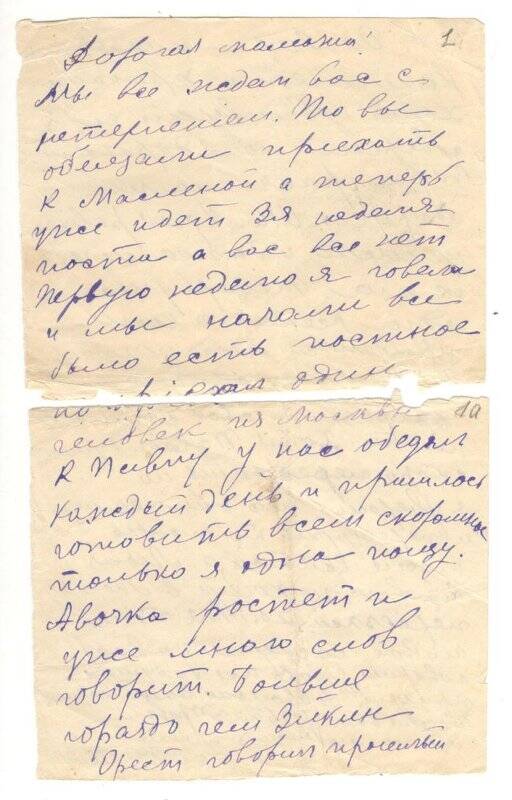 Дорогая мамочка! 1
Мы все ждем вас с
нетерпением. То вы
обещали приехать
к Масленой а теперь
уже идет 3я неделя
поста а вас все нет
Первую неделю я говела
и мы начали все
было есть постное
но приехал один
человек из Москвы 1а
к Павлу у нас обедал
каждый день и пришлось
готовить всем скоромное
только я одна пощу.
Авочка ростет и
уже много слов
говорит. Больше
гораздо чем
Орест говорил